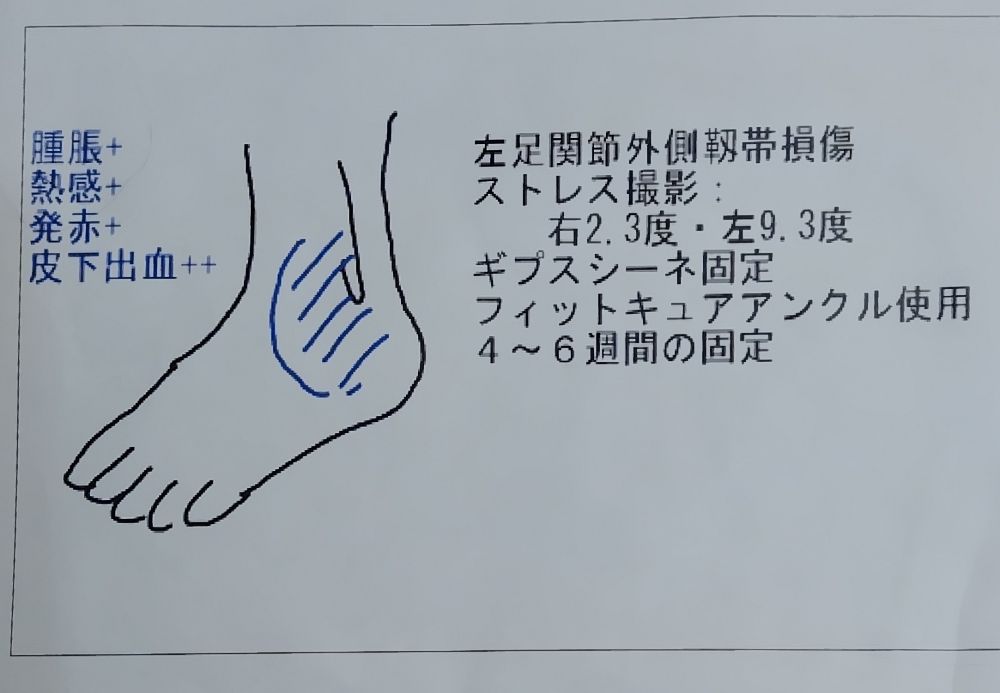 腫脹+
熱感+
発赤+
皮下出血++
左足関節外側靱帯損傷
ストレス撮影:
右2.3度・左9.3度
ギプスシーネ固定
フィットキュアアンクル使用
4～6週間の固定